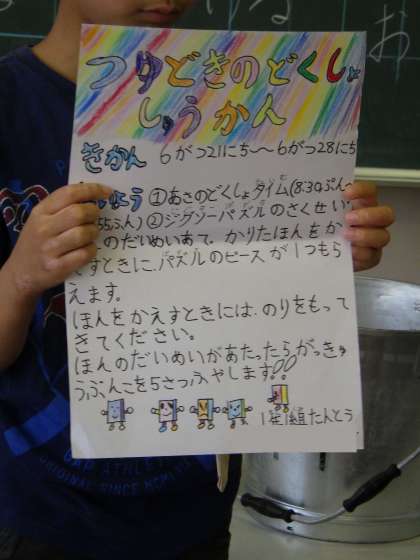 つゆどきのどくしょ
しゅうかん
きかん 6がつ21にち〜6がつ28にち
①あさのどくしょタイム(8:30ぷん〜
55ふん)②ジグソーパズルのさくせい
のだいめいあて。かりたほんをか
すときに、パズルのピースが1つもら
えます。
ほんをかえすときには、のりをもって
きてください。
ほんのだいめいがあたったらがっきゅ
うぶんこを5さつふやします!!
1年1組たんとう
GAP ATHLETIC
ORIGINAL SINCE MCMLXIX
お